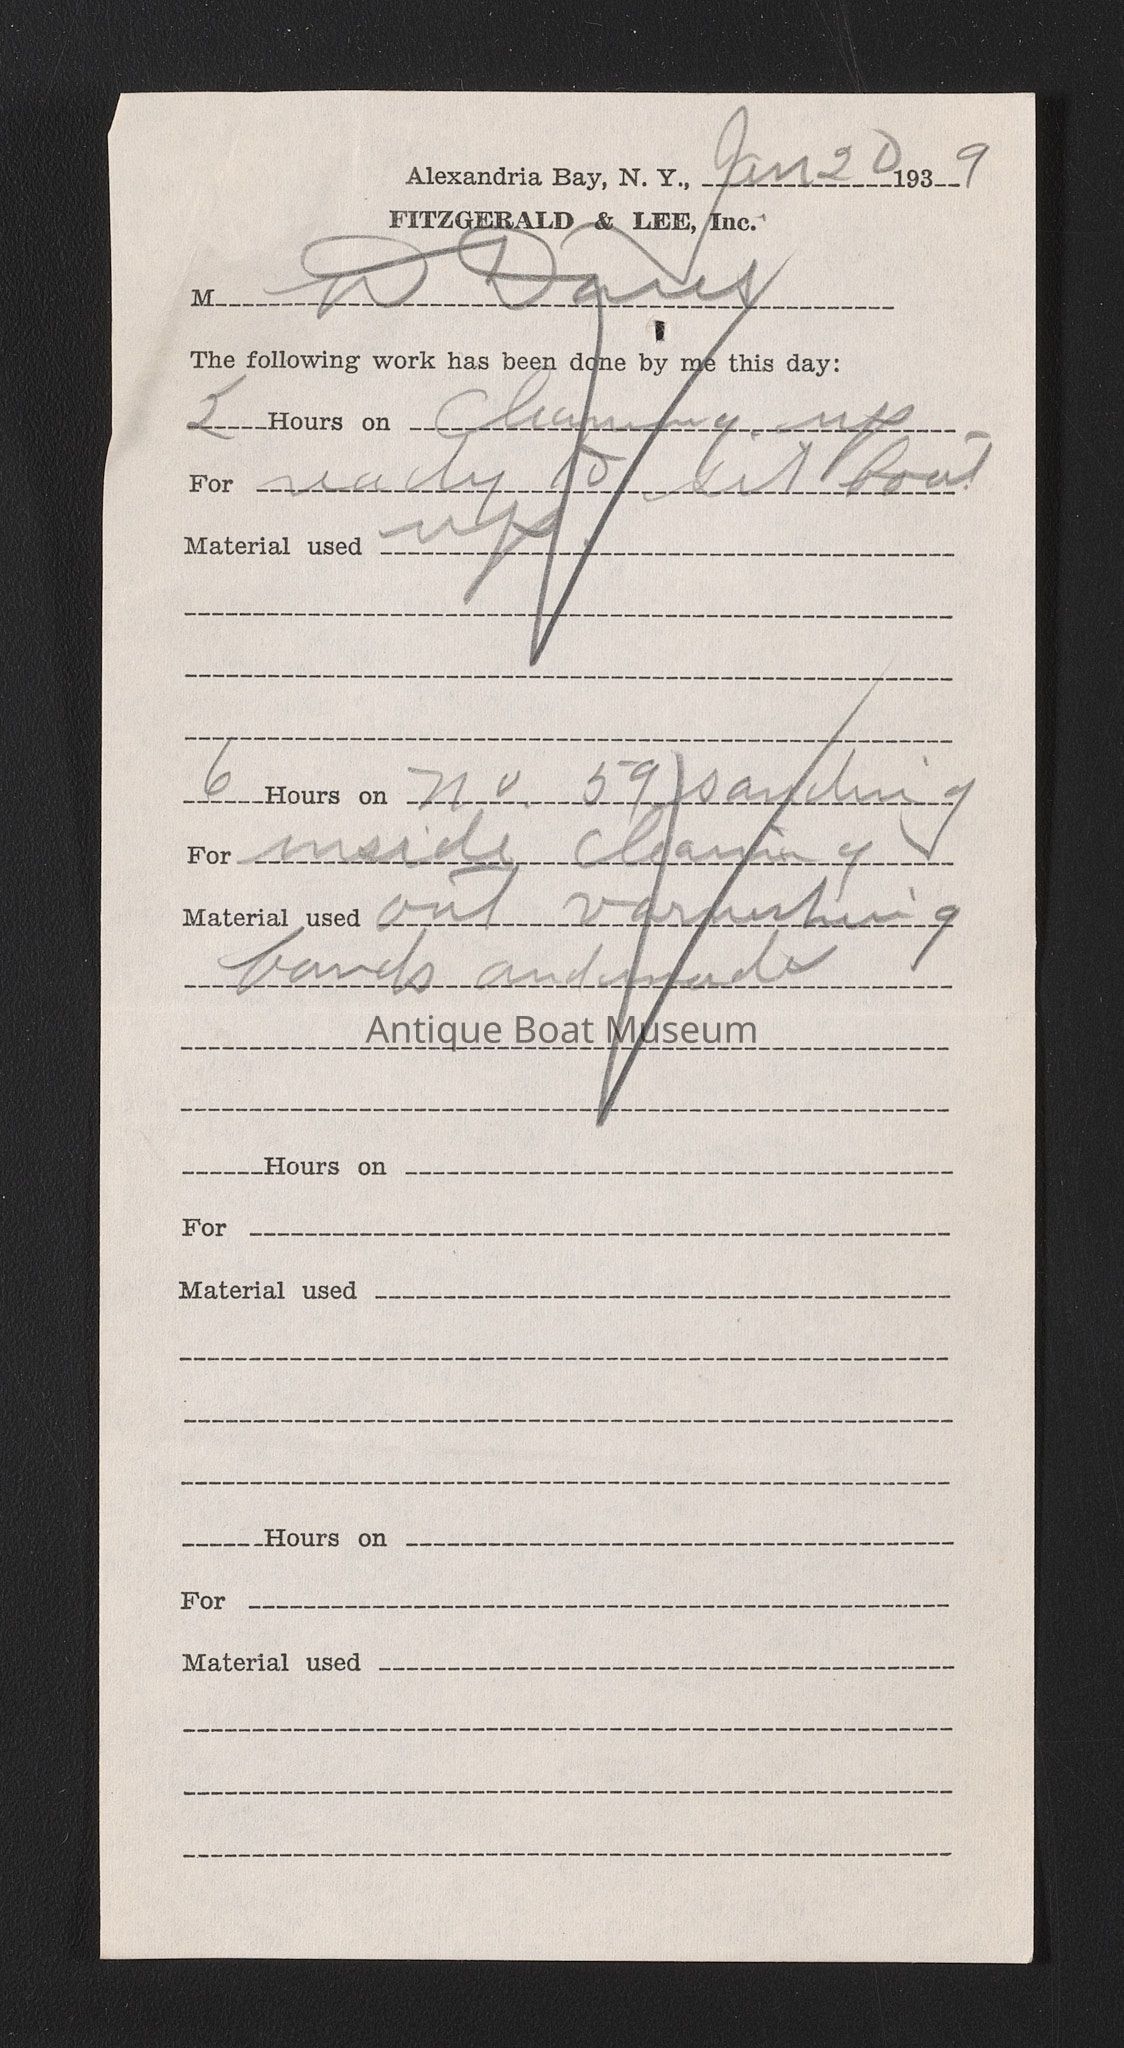 Alexandria Bay, N. Y., Jan 20 1939
FITZGERALD & LEE, Inc.
M D Davis
The following work has been done by me this day:
2 Hours on Cleaning up
For ready to set boat
Material used up.
6 Hours on No. 59 sanding
For inside cleaning
Material used out varnishing
and made
Antique Boat Museum
Hours on
For
Material used
Hours on
For
Material used